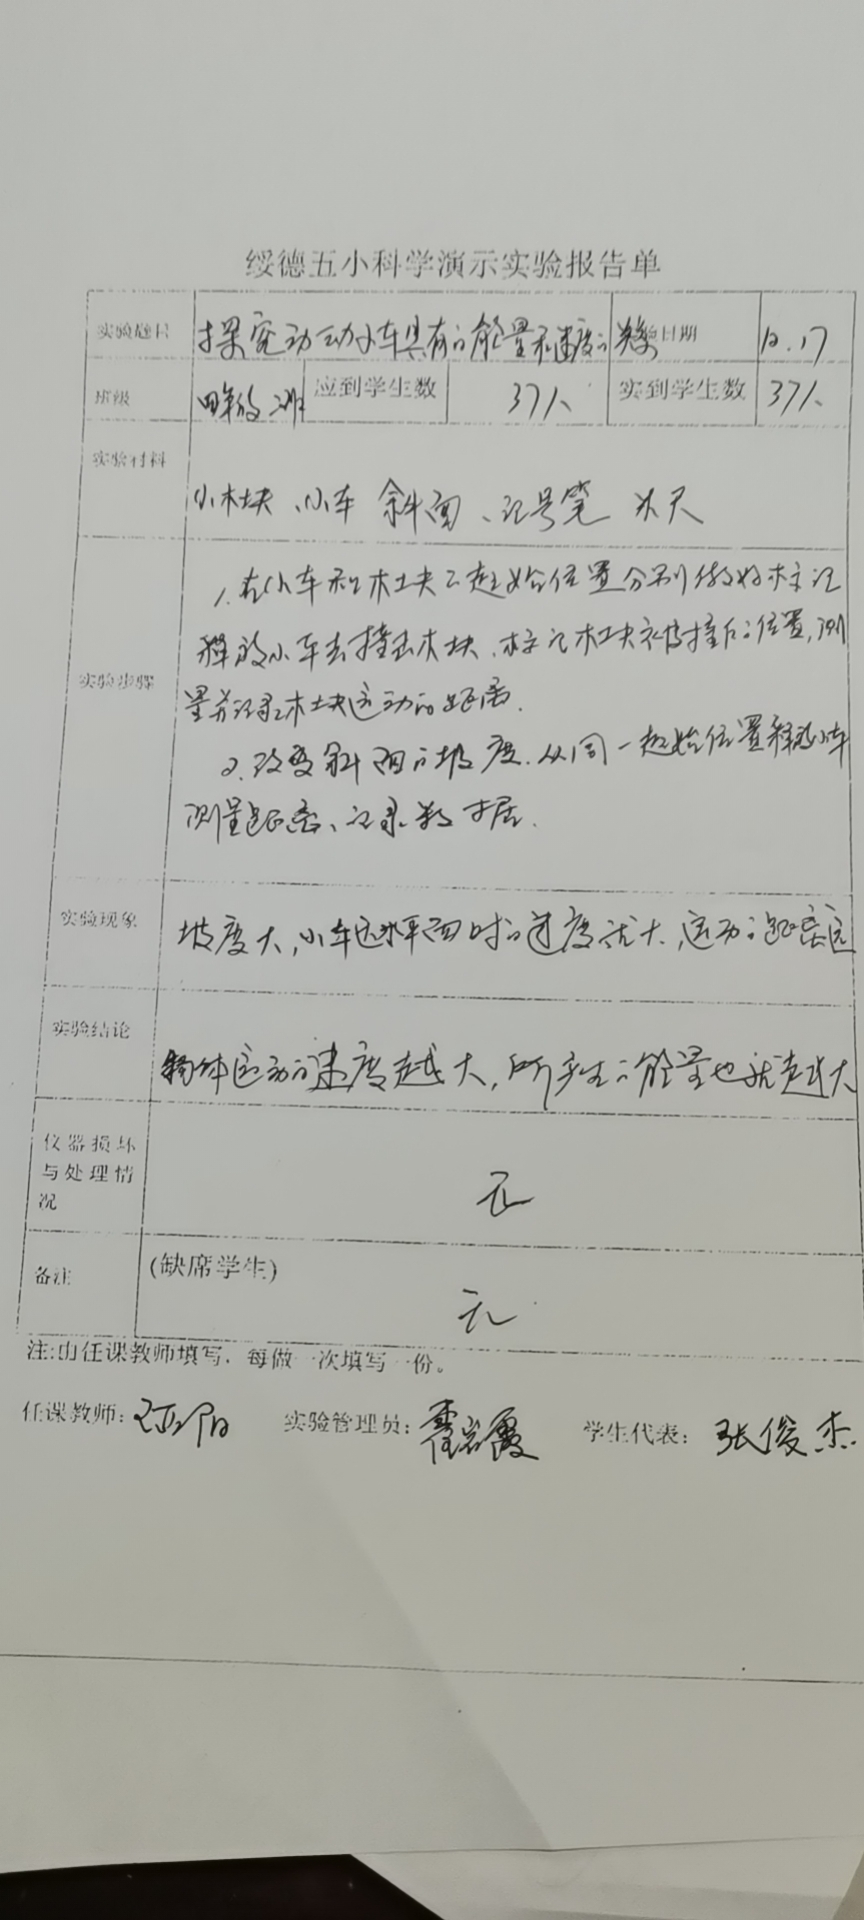 绥德五小科学演示实验报告单
实验题目 探究动动小车具有的能量和速度的关系 实验日期 12.17
班级 四年级二班 应到学生数 37人 实到学生数 37人
实验材料
小木块、小车 斜面、记号笔 米尺
1.在小车和木块的起始位置分别做好标记
释放小车去撞击木块、标记木块被撞后的位置,测
实验步骤
量并记录木块运动的距离.
2.改变斜面的坡度.从同一起始位置释放小车
测量距离、记录数据.
实验现象
坡度大,小车达水平面时的速度就大,运动的距离远
实验结论
物体运动的速度越大,所产生的能量也就越大
仪器损坏
与处理情
况
无
备注 (缺席学生)
无
注:由任课教师填写,每做一次填写一份。
任课教师: 实验管理员: 学生代表: 张俊杰